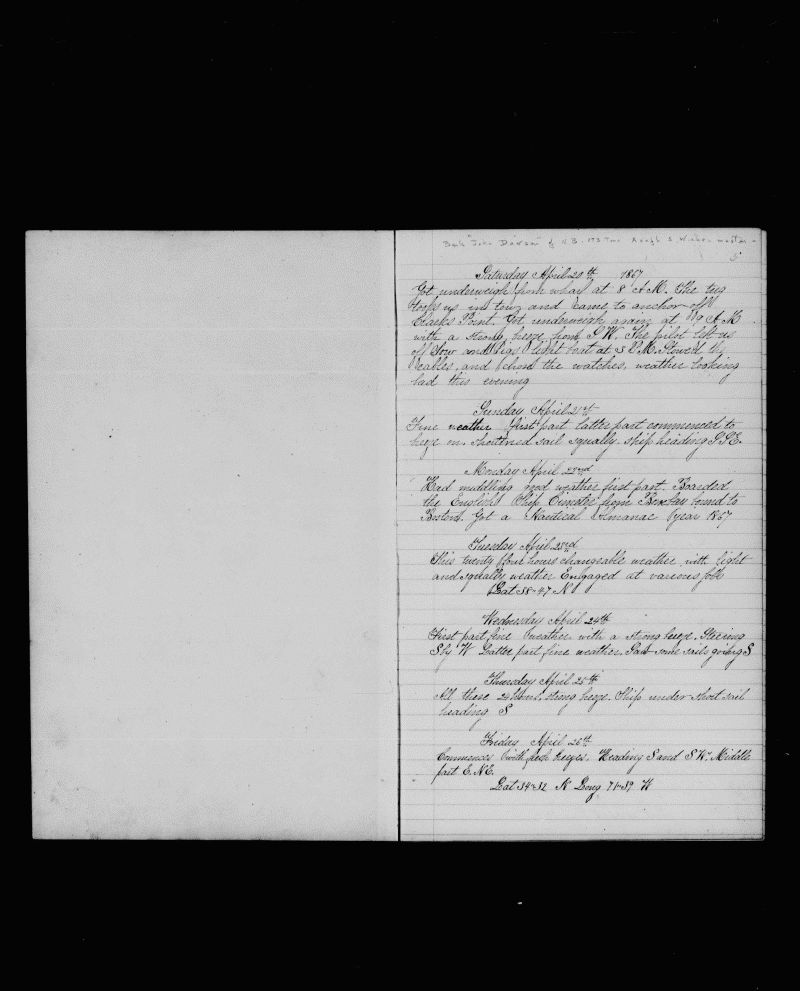 Bark "John Dawson" of N.B. 173 Tons Asaph S. Wicks master
5
Saturday April 20th 1867
Got underweigh from wharf at 8 A M. The tug
took us in tow and came to anchor off
Clarks Point. Got underweigh again at 10 A M
with a strong breeze from S W. The pilot left us
off Sow and Pigs light boat at 3 P M. Stowed the
cables, and chose the watches, weather looking
bad this evening
Sunday April 21st
Fine weather first part latter part commenced to
breeze on. shortened sail squally. ship heading S S E.
Monday April 22nd
Had middling good weather first part. Boarded
the English Ship from bound to
Boston. Got a Nautical Almanac year 1867
Tuesday April 23rd
This twenty four hours changeable weather with light
and squally weather Engaged at various jobs
Lat 38-47 N
Wednesday April 24th
First part fine weather with a strong breeze. Steering
S by W Latter part fine weather. Saw some sails going S
Thursday April 25th
All these 24 hours, strong breeze. Ship under short sail
heading S
Friday April 26th
Commences with fresh breezes. Heading S and S W. Middle
part E. N E.
Lat 34-32 N Long 71-39 W